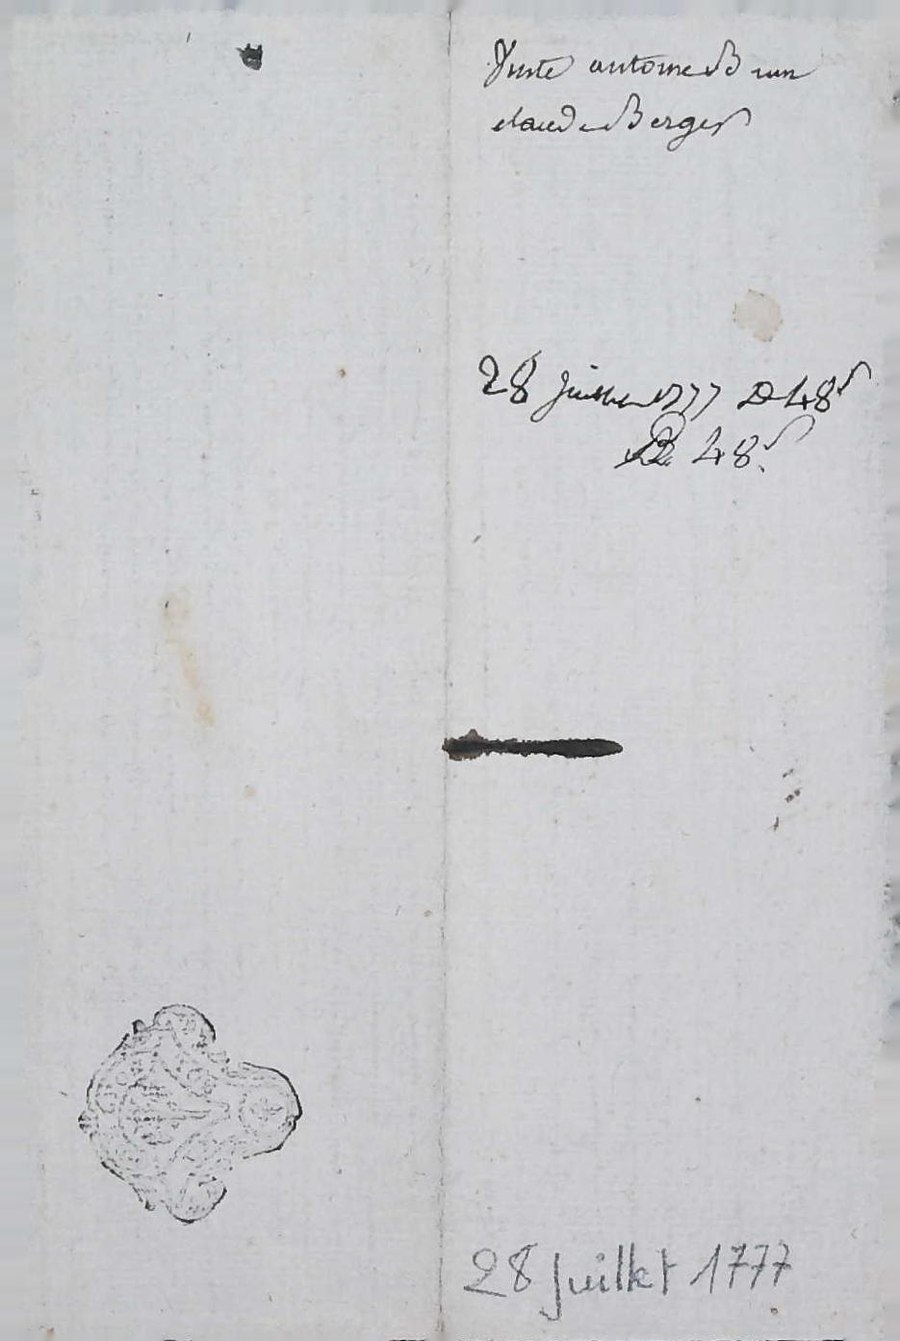 Vente antoine Brun
claude Berger
28 Juillet 1777 De 48ˢ
De 48ˢ
28 Juillet 1777